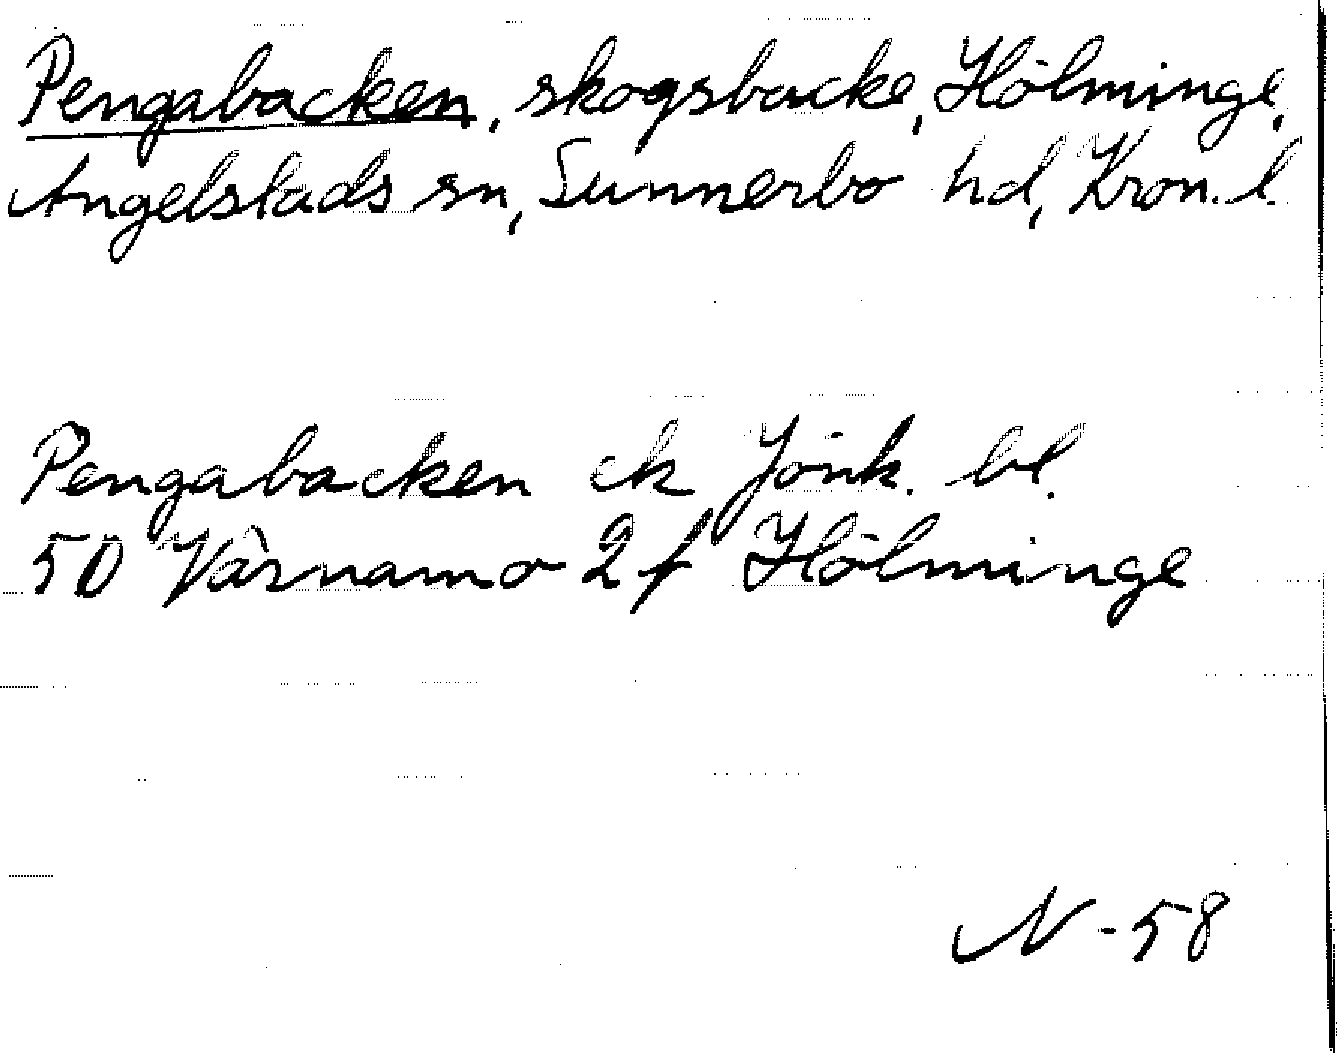 Pengabacken, skogsbacke, Hölminge,
Angelstads sn, Sunnerbo hd, Kron. l.
Pengabacken ek Jönk. bl.
5D Värnamo 2f Hölminge
N-58